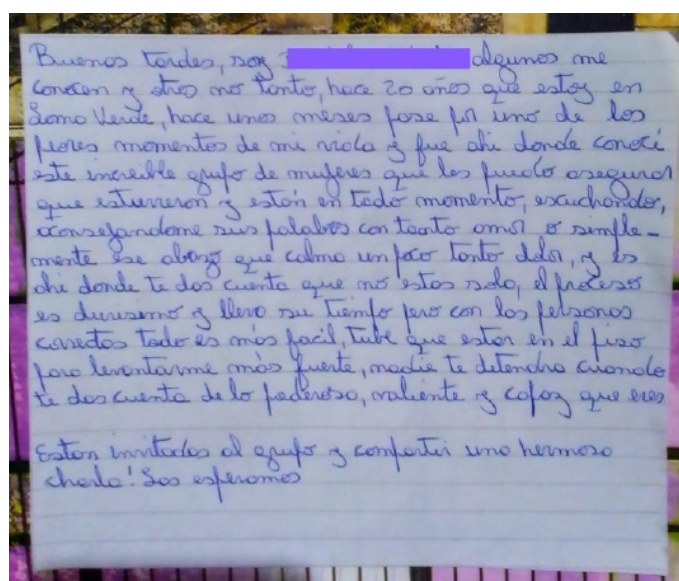 Buenas tardes, soy algunos me
conocen y otros no tanto, hace 20 años que estoy en
Loma Verde, hace unos meses pase por uno de los
peores momentos de mi vida y fue ahi donde conocí
este increible grupo de mujeres que les puedo asegurar
que estuvieron y están en todo momento, escuchando,
aconsejandome sus palabras con tanto amor o simple-
mente ese abrazo que calma un poco tanto dolor, y es
ahi donde te das cuenta que no estas sola, el proceso
es durisimo y lleva su tiempo pero con las personas
correctas todo es más facil, tube que estar en el piso
para levantarme más fuerte, nadie te detendra cuando
te das cuenta de lo poderosa, valiente y capaz que eres
Estan invitadas al grupo y compartir una hermosa
charla! Las esperamos